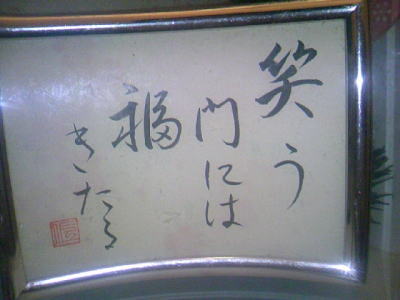 笑う
門には
福
きたる